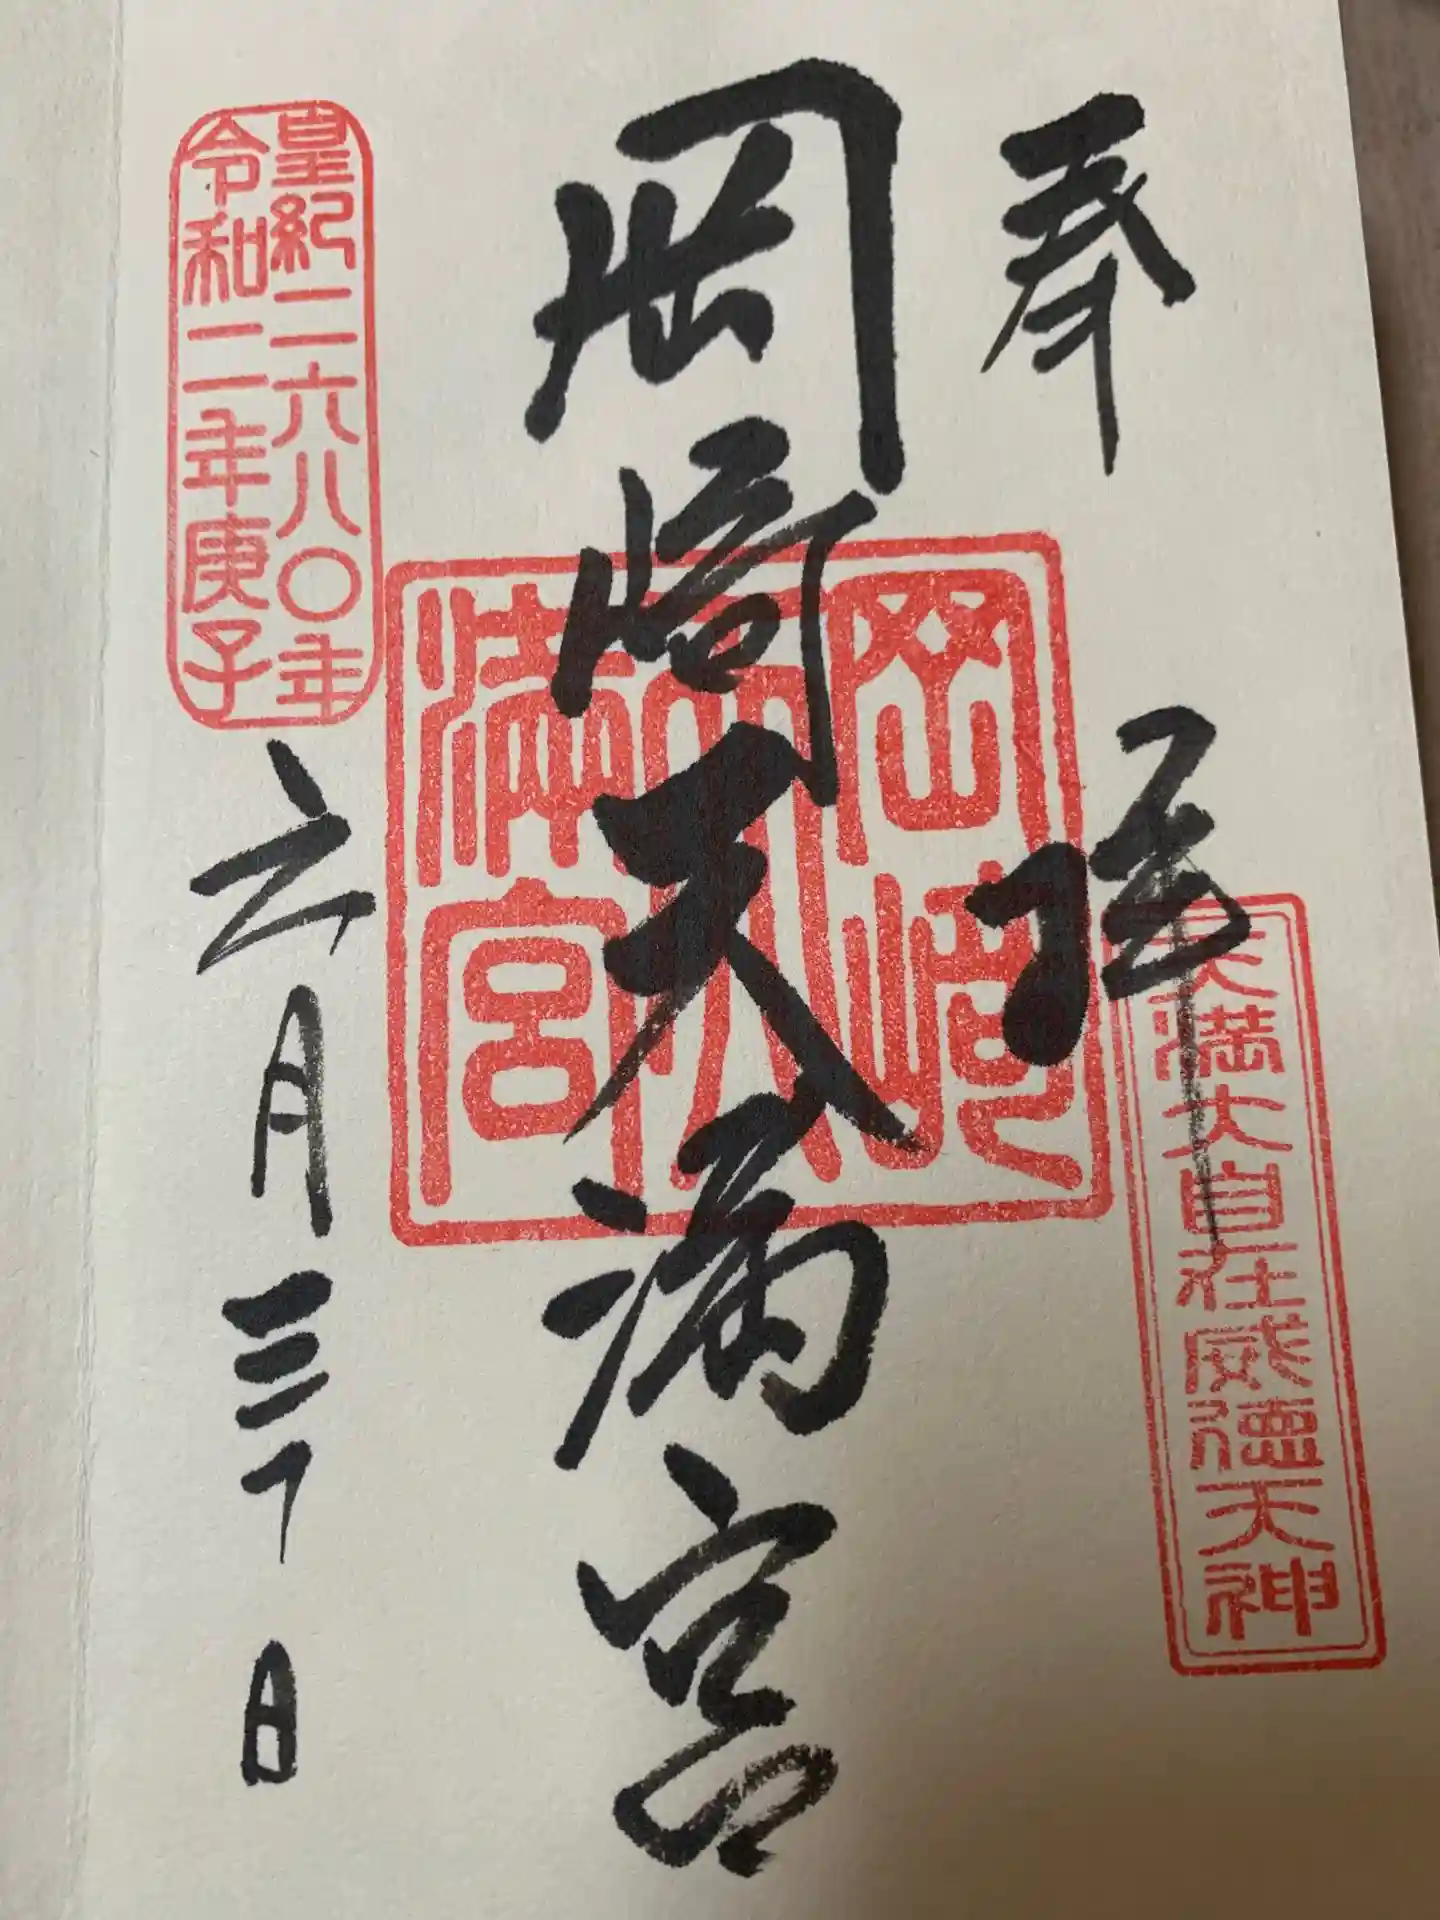 奉拝
天満大自在威徳天神
岡崎天満宮
岡崎
天
満宮
皇紀二六八〇年
令和二年庚子
六月三十日